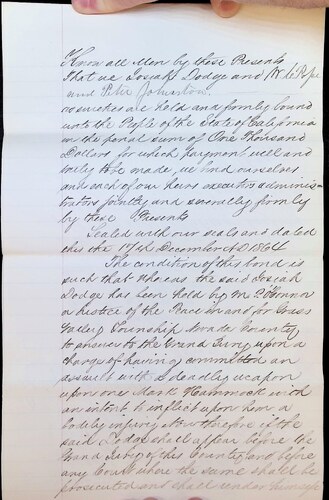 Know all Men by these Presents
That we Josiah Dodge and W. C. Pope
and Peter Johnston
as sureties are held and firmly bound
unto the People of the State of California
in the penal sum of One Thousand
Dollars for which payment well and
truly to be made, we bind ourselves
and each of our heirs executors adminis-
trators jointly and severally firmly
by these Presents
Sealed with our seals and dated
this the 17th December AD 1864
The condition of this bond is
such that whereas the said Josiah
Dodge has been held by M. P. O'Connor
a Justice of the Peace in and for Grass
Valley Township Nevada County
to answer to the Grand Jury upon a
charge of having committed an
assault with a deadly weapon
upon one Mark Hammock with
an intent to inflict upon him a
bodily injury. Now therefore if the
said Dodge shall appear before the
Grand Jury of this County and before
any Court where the same shall be
prosecuted and shall render himself